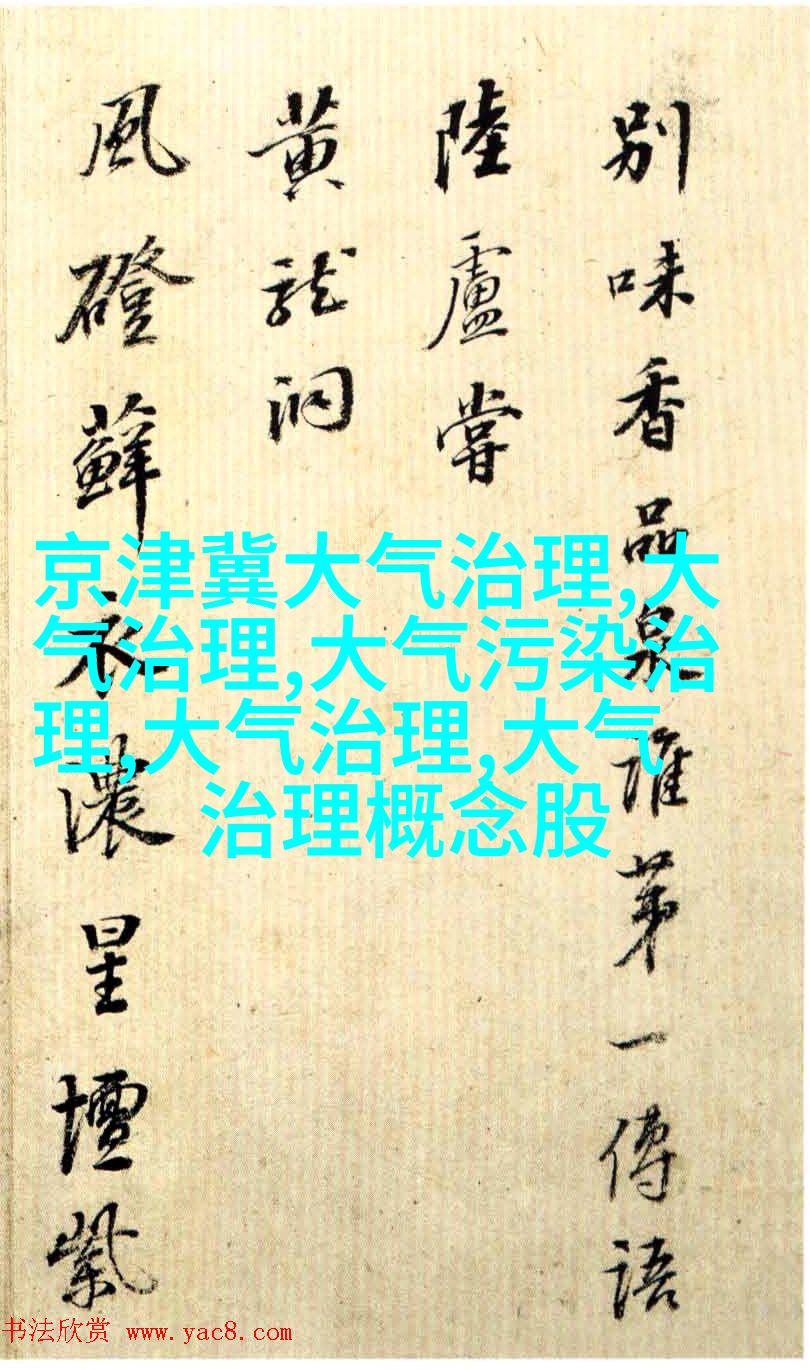 别味香品泉唯第一傳語
陸盧嘗
黄龍洞
風磴蘚衣濃星壇紫
京津冀大气治理,大
气治理,大气污染治
理,大气治理,大气
治理概念股
书法欣赏 www.yac8.com